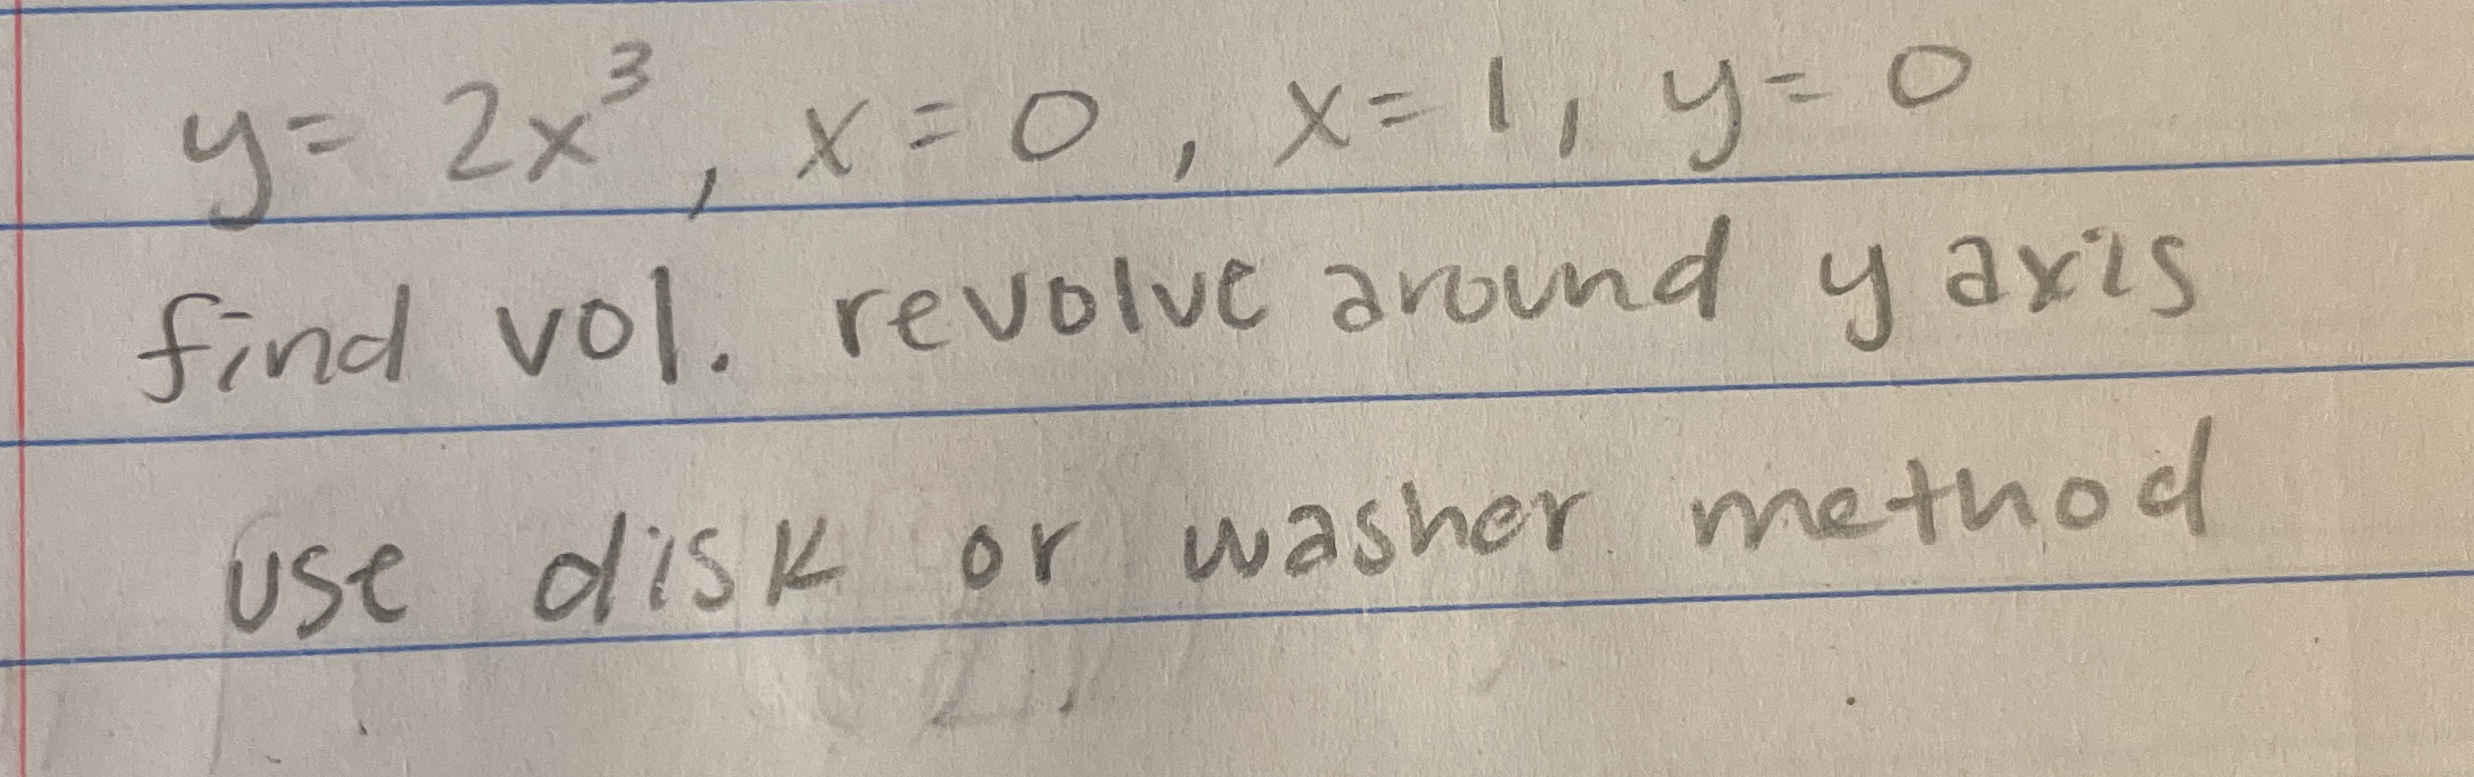 y = 2x³, x = 0, x = 1, y = 0
find vol. revolve around y axis
use disk or washer method